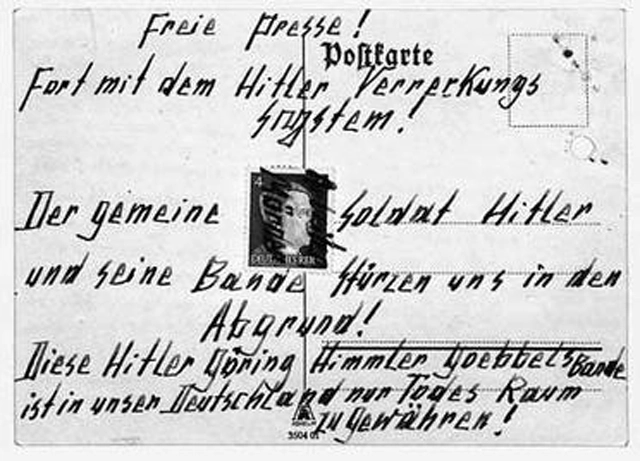 Freie Presse!
Postkarte
Fort mit dem Hitler Verreckungs
system!
Der gemeine Soldat Hitler
und seine Bande Stürzen uns in den
Abgrund!
Diese Hitler Göring Himmler Goebbels Bande
ist in unser Deutschland nur Todes Raum
zu gewähren!
3504 01